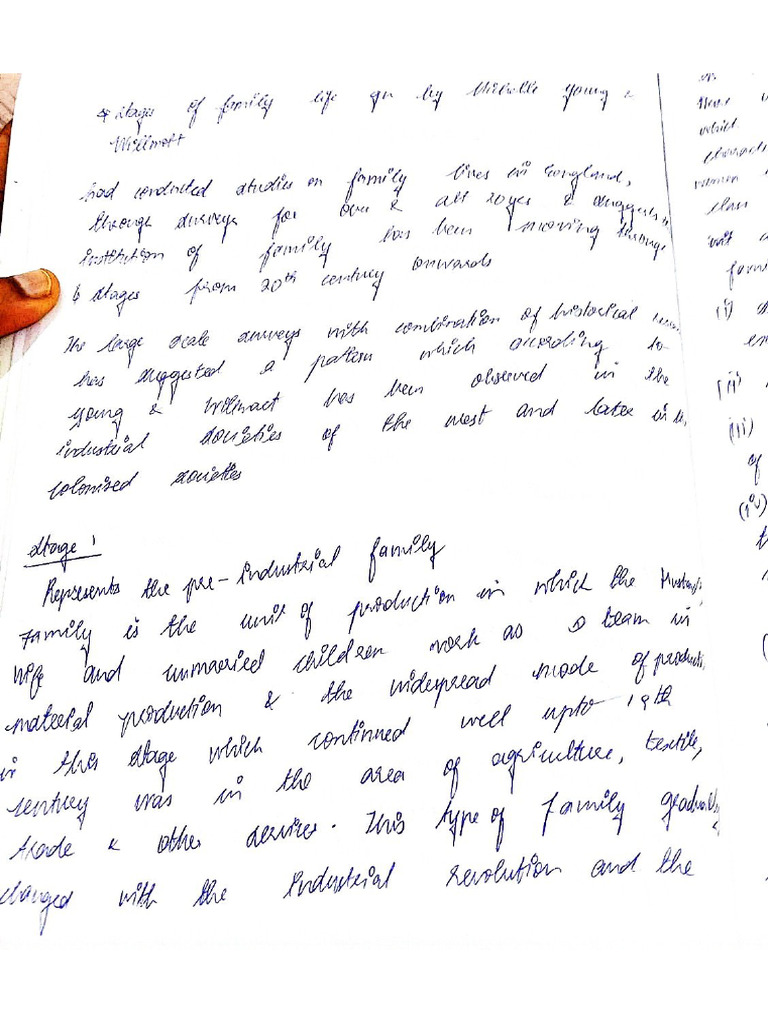 * Stages of family life gn by Michelle Young &
Willmott
had conducted studies on family lives in England,
through surveys for over & all 20 yrs & suggests
institution of family has been moving through
4 stages from 20th century onwards
The large scale surveys with combination of historical
has suggested a pattern which according to
young & Willmact has been observed in the
industrial societies of the west and later in
colonised societies
Stage 1
Represents the pre-industrial family
Family is the unit of production in which the Husband
wife and unmarried children work as a team in
material production & the widespread mode of producti
in this stage which continued well upto 19th
century was in the area of agriculture, textile,
trade & other services. This type of Family gradually
changed with the industrial revolution and the
were
which
women
class
(i)
(ii)
(iii)
of
(iv)